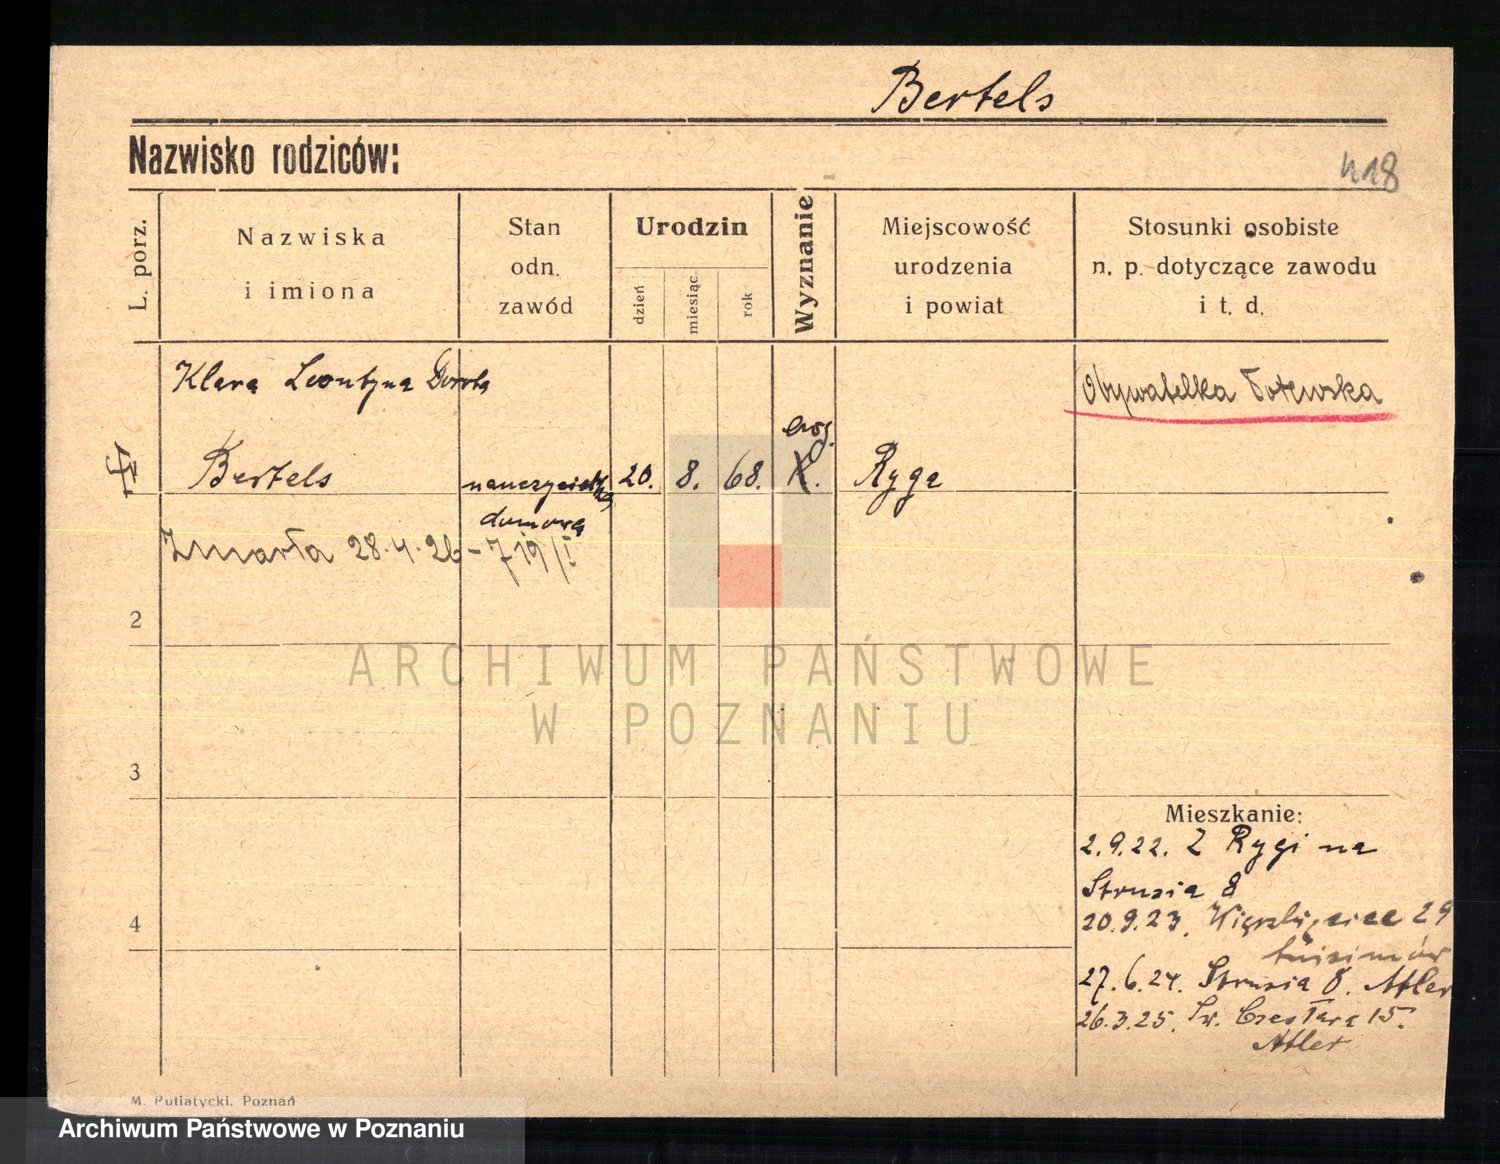 Bertels
Nazwisko rodziców:
418
L. porz.
Nazwiska
i imiona
Stan
odn.
zawód
Urodzin
dzień
miesiąc
rok
Wyznanie
Miejscowość
urodzenia
i powiat
Stosunki osobiste
n. p. dotyczące zawodu
i t. d.
Klara Leontyna Dorota
Obywatelka Łotewska
ewg.
Bertels nauczycielka 20. 8. 68. K. Ryga
domowa
Zmarła 28.4.26
2
ARCHIWUM PAŃSTWOWE
W POZNANIU
3
Mieszkanie:
2.9.22. Z Rygi na
Strusia 8
4
20.9.23. 29
27.6.24. Strusia 8. Atler
26.3.25. Św. Czesława 15.
Atler
M. Putiatycki. Poznań
Archiwum Państwowe w Poznaniu